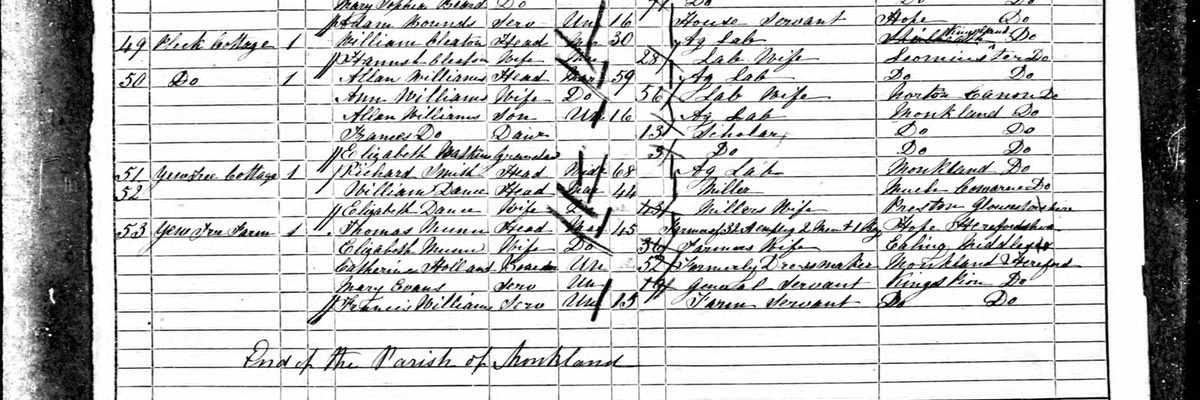 Mary Sophia Beard Do Do Do
Adam Bounds Serv Un 16 House Servant Hope Do
49 Pleck Cottage 1 William Cleaton Head Mar 30 Ag Lab Kingsland Do
Hannah Cleaton Wife Mar 28 Lab Wife Leominster Do
50 Do 1 Allan Williams Head Mar 59 Ag Lab Do Do
Ann Williams Wife Do 56 Lab Wife Norton Canon Do
Allan Williams Son Un 16 Ag Lab Monkland Do
Frances Do Daur 13 Scholar Do Do
Elizabeth Watkins 3 Do Do Do
51 Yew Tree Cottage 1 Richard Smith Head Widr 68 Ag Lab Monkland Do
52 William Dance Head Mar 44 Miller Much Cowarne Do
Elizabeth Dance Wife Do 43 Millers Wife Preston Gloucestershire
53 Yew Tree Farm 1 Thomas Munn Head Mar 45 Farmer of 32 A employ 2 Men & 1 Boy Hope Herefordshire
Elizabeth Munn Wife Do 36 Farmers Wife Ealing Middlesex
Catherine Holland Boarder Un 52 Formerly Dressmaker Monkland Hereford
Mary Evans Serv Un 19 General Servant Kington Do
Francis Williams Serv Un 15 Farm Servant Do Do
End of the Parish of Monkland